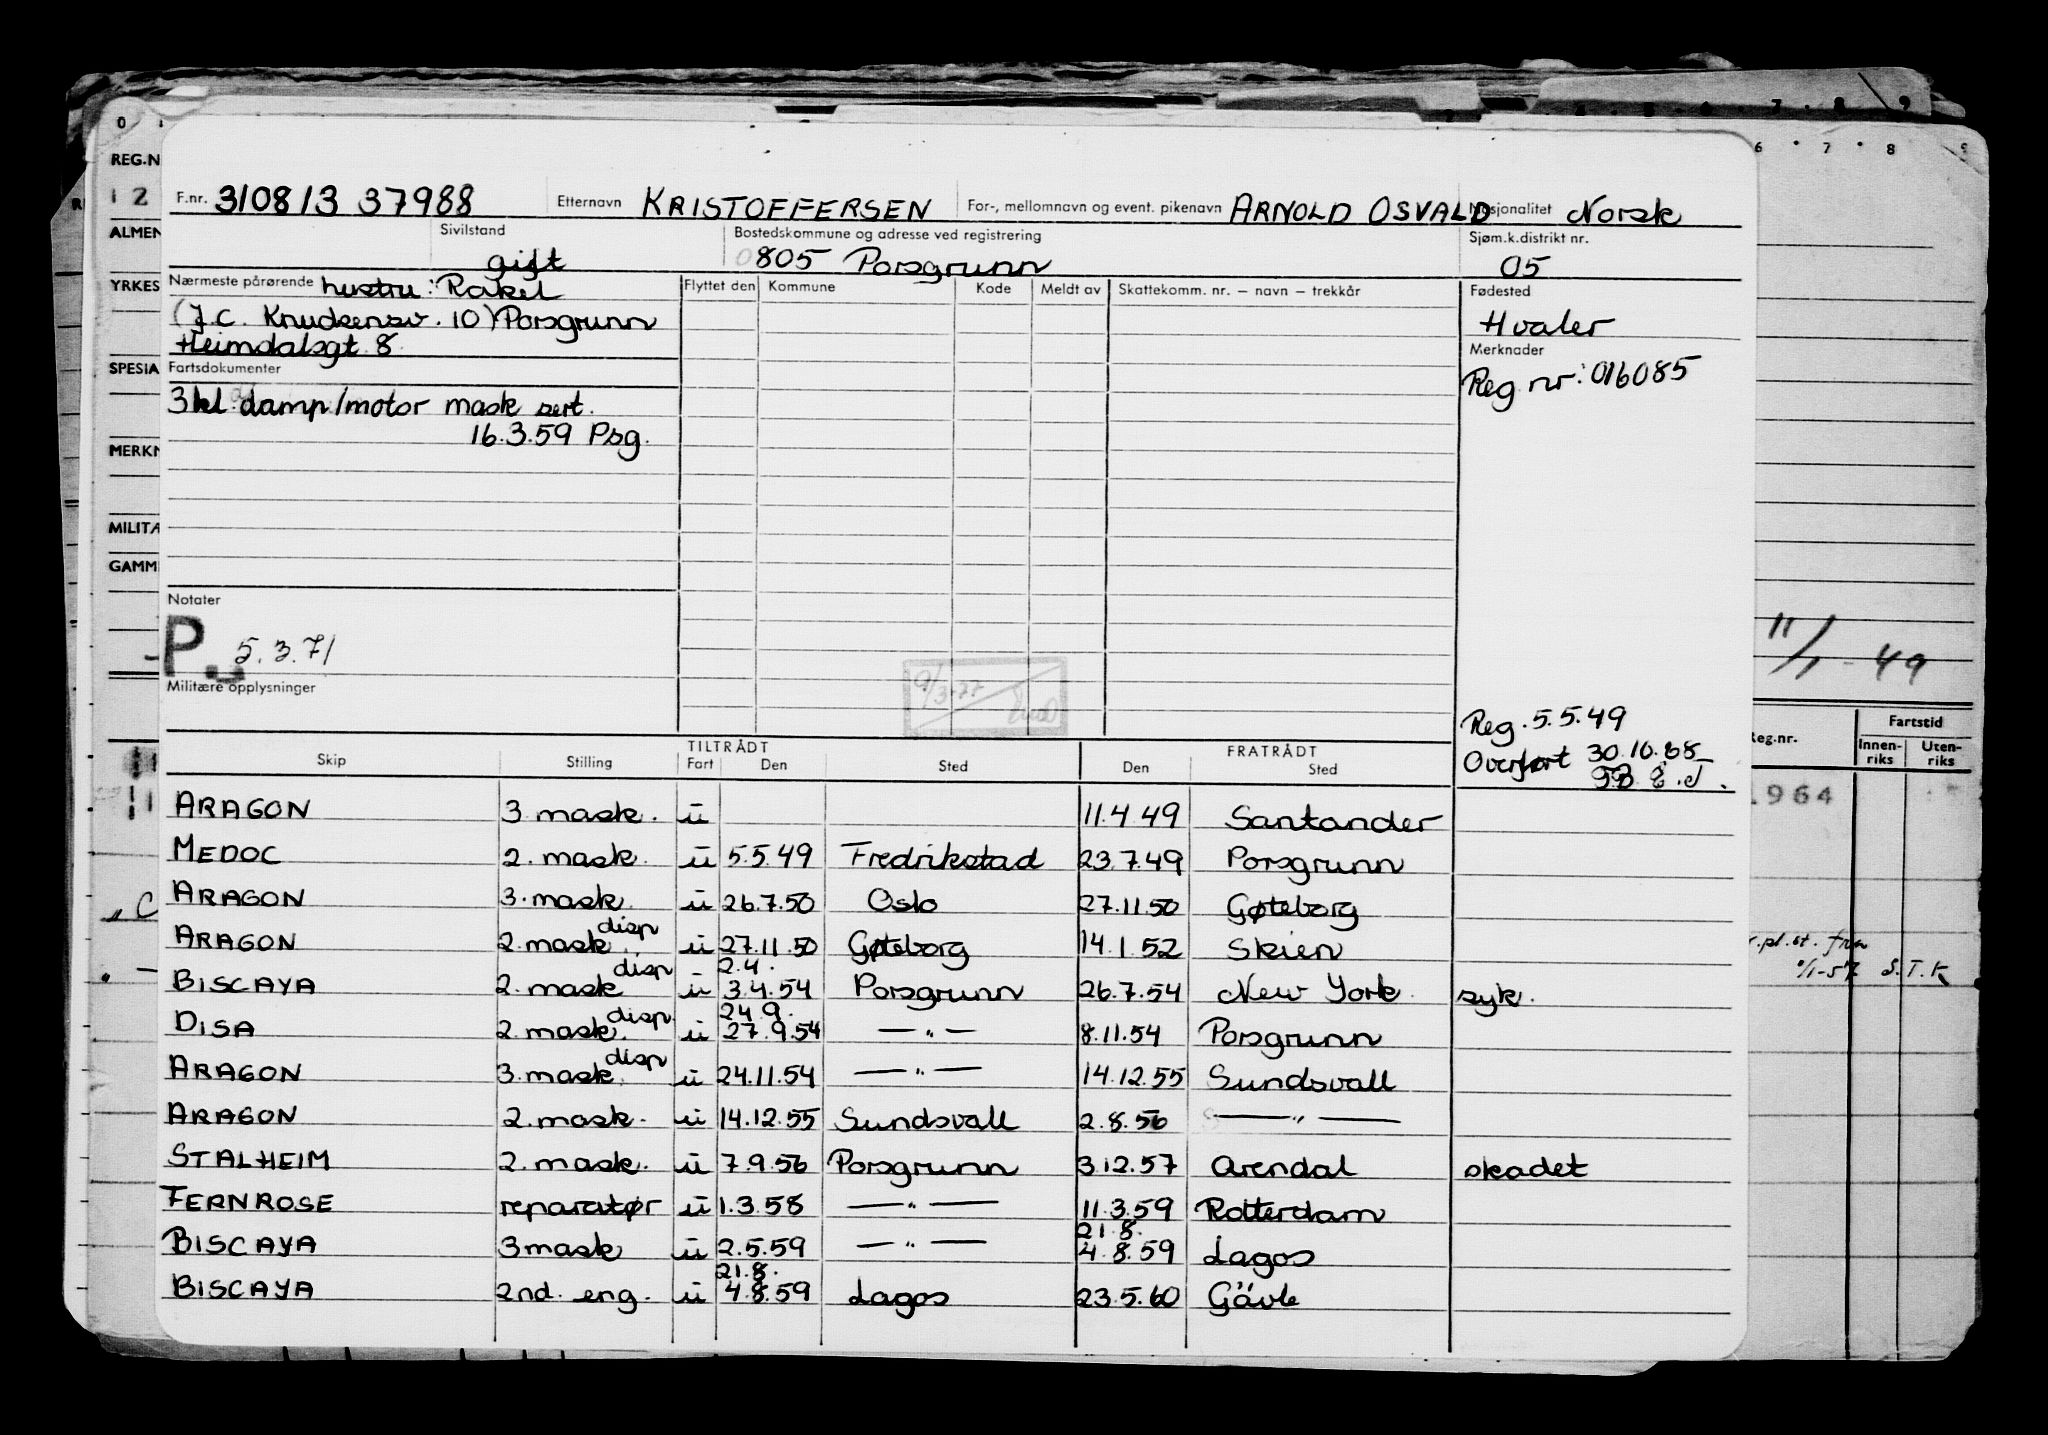 F.nr. 310813 37988 Etternavn KRISTOFFERSEN For-, mellomnavn og event. pikenavn ARNOLD OSVALD Nasjonalitet Norsk
Sivilstand gift Bostedskommune og adresse ved registrering 0805 Porsgrunn Sjøm.k.distrikt nr. 05
Nærmeste pårørende hustru: Rakel
(J.C. Knudsensv. 10) Porsgrunn
Heimdalsgt. 8.
Flyttet den Kommune Kode Meldt av Skattekomm. nr. – navn – trekkår
Fødested
Hvaler
Merknader
Reg. nr: 016085
Fartsdokumenter
3 kl. damp/motor mask sert.
16.3.59 Psg.
Notater
P. 5.3.71
Militære opplysninger
9/3-77
Reg. 5.5.49
Overført 30.10.68
TILTRÅDT FRATRÅDT
Skip Stilling Fart Den Sted Den Sted
ARAGON 3. mask. u 11.4.49 Santander
MEDOC 2. mask. u 5.5.49 Fredrikstad 23.7.49 Porsgrunn
ARAGON 3. mask. u 26.7.50 Oslo 27.11.50 Gøteborg
ARAGON 2. mask. disp u 27.11.50 Gøteborg 14.1.52 Skien
BISCAYA 2. mask disp u 2.4. 3.4.54 Porsgrunn 26.7.54 New York. syk.
DISA 2. mask. disp u 24.9. 27.9.54 — " — 8.11.54 Porsgrunn
ARAGON 3. mask. disp u 24.11.54 — " — 14.12.55 Sundsvall
ARAGON 2. mask. u 14.12.55 Sundsvall 2.8.56 — " —
STALHEIM 2. mask. u 7.9.56 Porsgrunn 3.12.57 Arendal skadet
FERNROSE reparatør u 1.3.58 — " — 11.3.59 Rotterdam
BISCAYA 3 mask u 2.5.59 — " — 21.8. 4.8.59 Lagos
BISCAYA 2nd. eng. u 21.8. 4.8.59 Lagos 23.5.60 Gävle
REG.N
12
ALMEN
YRKES
SPESIA
MERKN
MILITÆ
GAMM
6 7 8 9
11/1-49
Reg.nr. Fartstid
Innen-
riks
Uten-
riks
1964
S.T.K